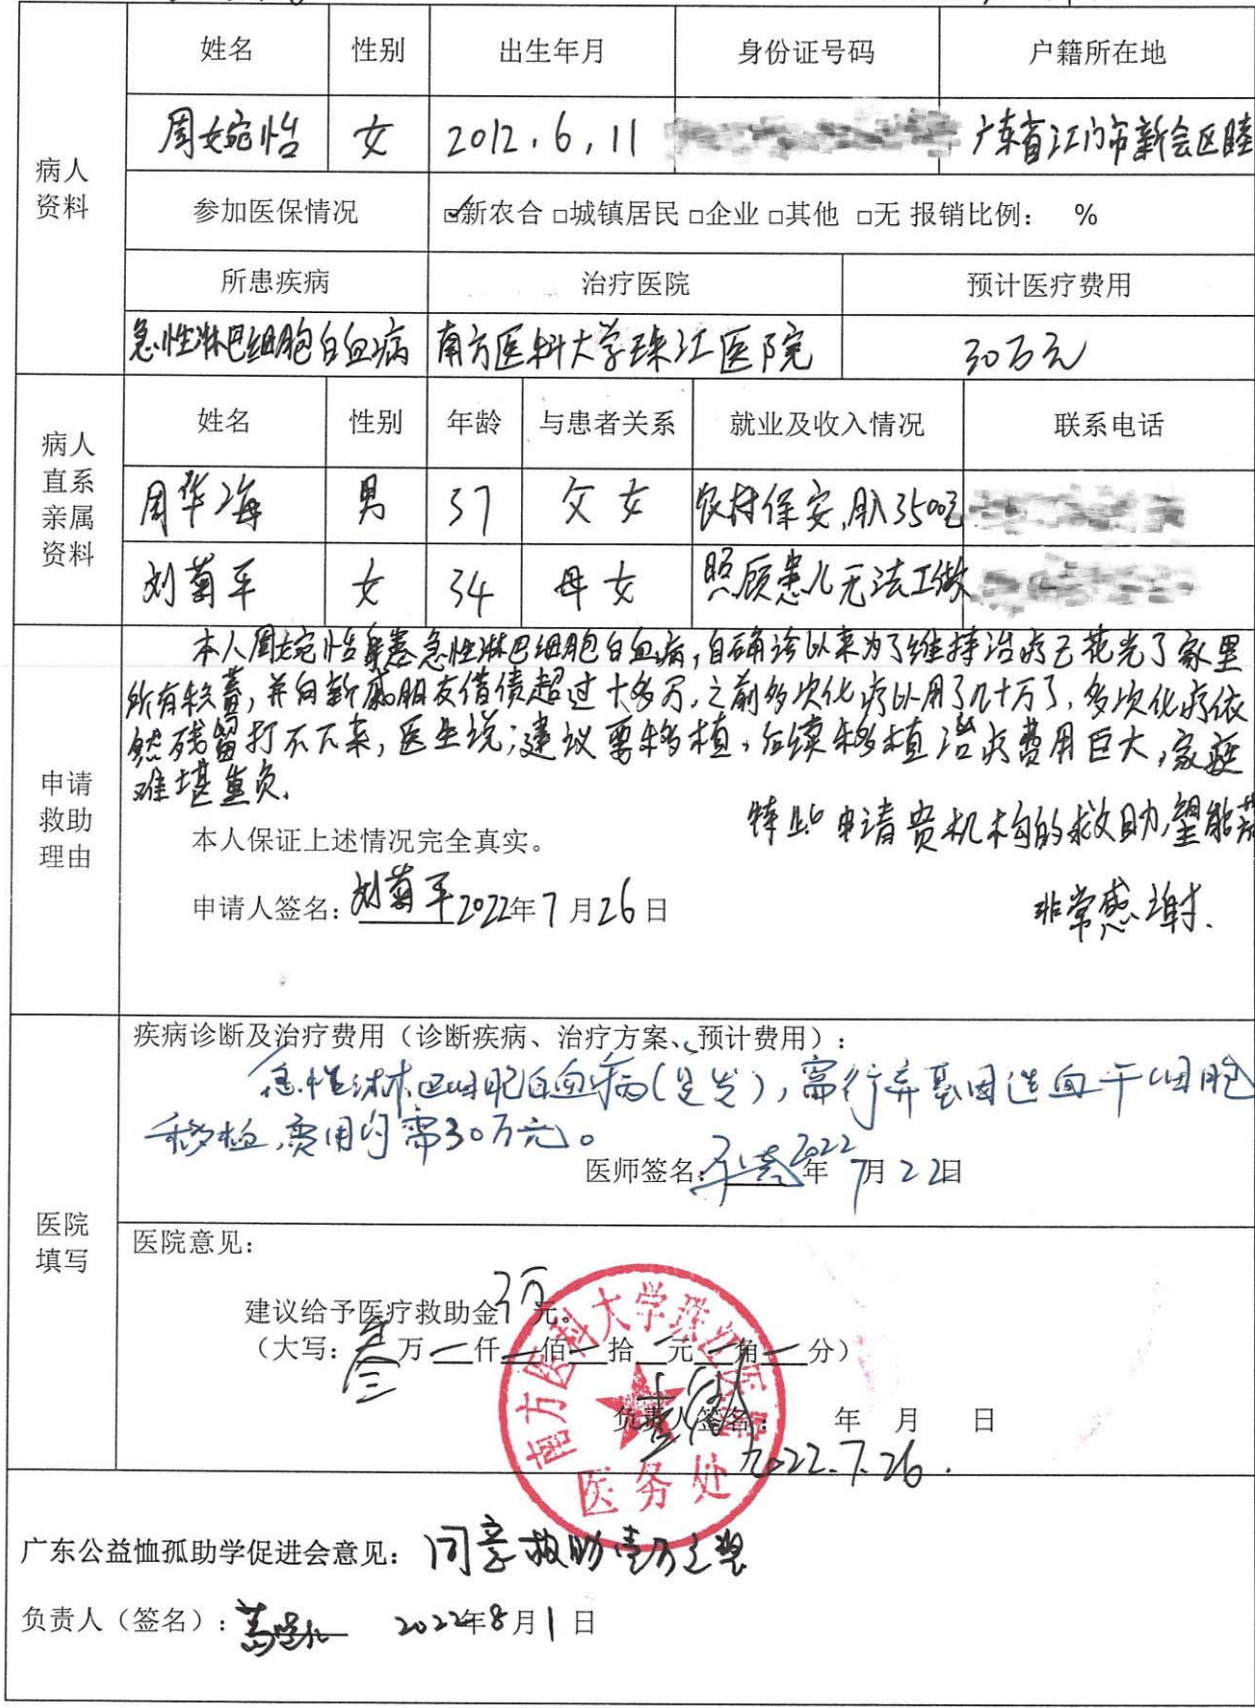 姓名 性别 出生年月 身份证号码 户籍所在地
病人
资料
周婉怡 女 2012.6.11 广东省江门市新会区睦
参加医保情况 ☑新农合 □城镇居民 □企业 □其他 □无 报销比例： %
所患疾病 治疗医院 预计医疗费用
急性淋巴细胞白血病 南方医科大学珠江医院 30万元
病人
直系
亲属
资料
姓名 性别 年龄 与患者关系 就业及收入情况 联系电话
周华海 男 37 父女 农村保安,月入3500元
刘菊平 女 34 母女 照顾患儿无法工做
申请
救助
理由
本人周婉怡身患急性淋巴细胞白血病,自确诊以来为了维持治疗已花光了家里
所有积蓄,并向新戚朋友借债超过十多万,之前多次化疗以用了几十万了,多次化疗依
然残留打不下来,医生说;建议要移植,后续移植治疗费用巨大,家庭
难堪重负.
特此申请贵机构的救助,望能
本人保证上述情况完全真实。
申请人签名：刘菊平2022年7月26日
非常感谢.
医院
填写
疾病诊断及治疗费用（诊断疾病、治疗方案、预计费用）：
急性淋巴细胞白血病(复发),需行异基因造血干细胞
移植,费用约需30万元。
医师签名: 2022年7月22日
医院意见：
建议给予医疗救助金3万元。
（大写：叁万一仟一佰一拾一元一角一分）
南方医科大学珠江医院
医务处
负责人签名： 年 月 日
2022.7.26.
广东公益恤孤助学促进会意见：同意救助壹万元整
负责人（签名）： 2022年8月1日